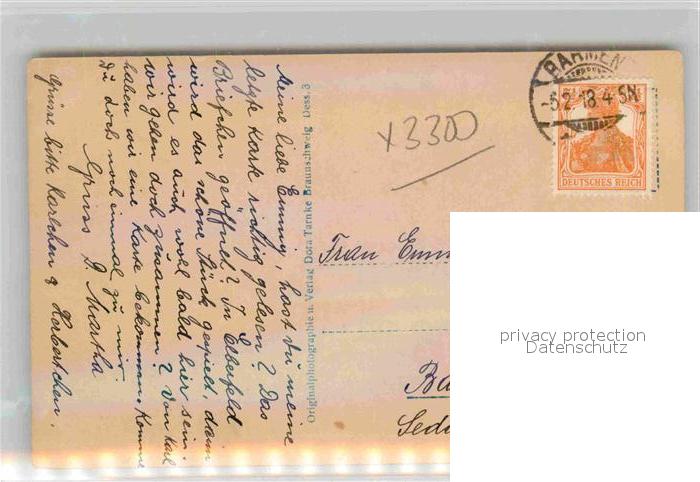 Meine liebe Emmy, hast du meine
letzte Karte richtig gelesen? Das
Briefchen geöffnet? In Elberfeld
wird das schöne Stück gespielt, dann
wird es auch wohl bald hier sein.
wir gehen doch zusammen? Von Karl
haben wir eine Karte bekommen. Komme
Du doch noch einmal zu mir.
Gruss D. Martha
Grüsse bitte Karlchen & Herbertchen.
Originalphotographie u. Verlag Dora Tarnke Braunschweig Dess. 3
x3300
BARMEN
-5.2.18.4-5N.
DEUTSCHES REICH
Frau Emm
Ba
Seda
privacy protection
Datenschutz